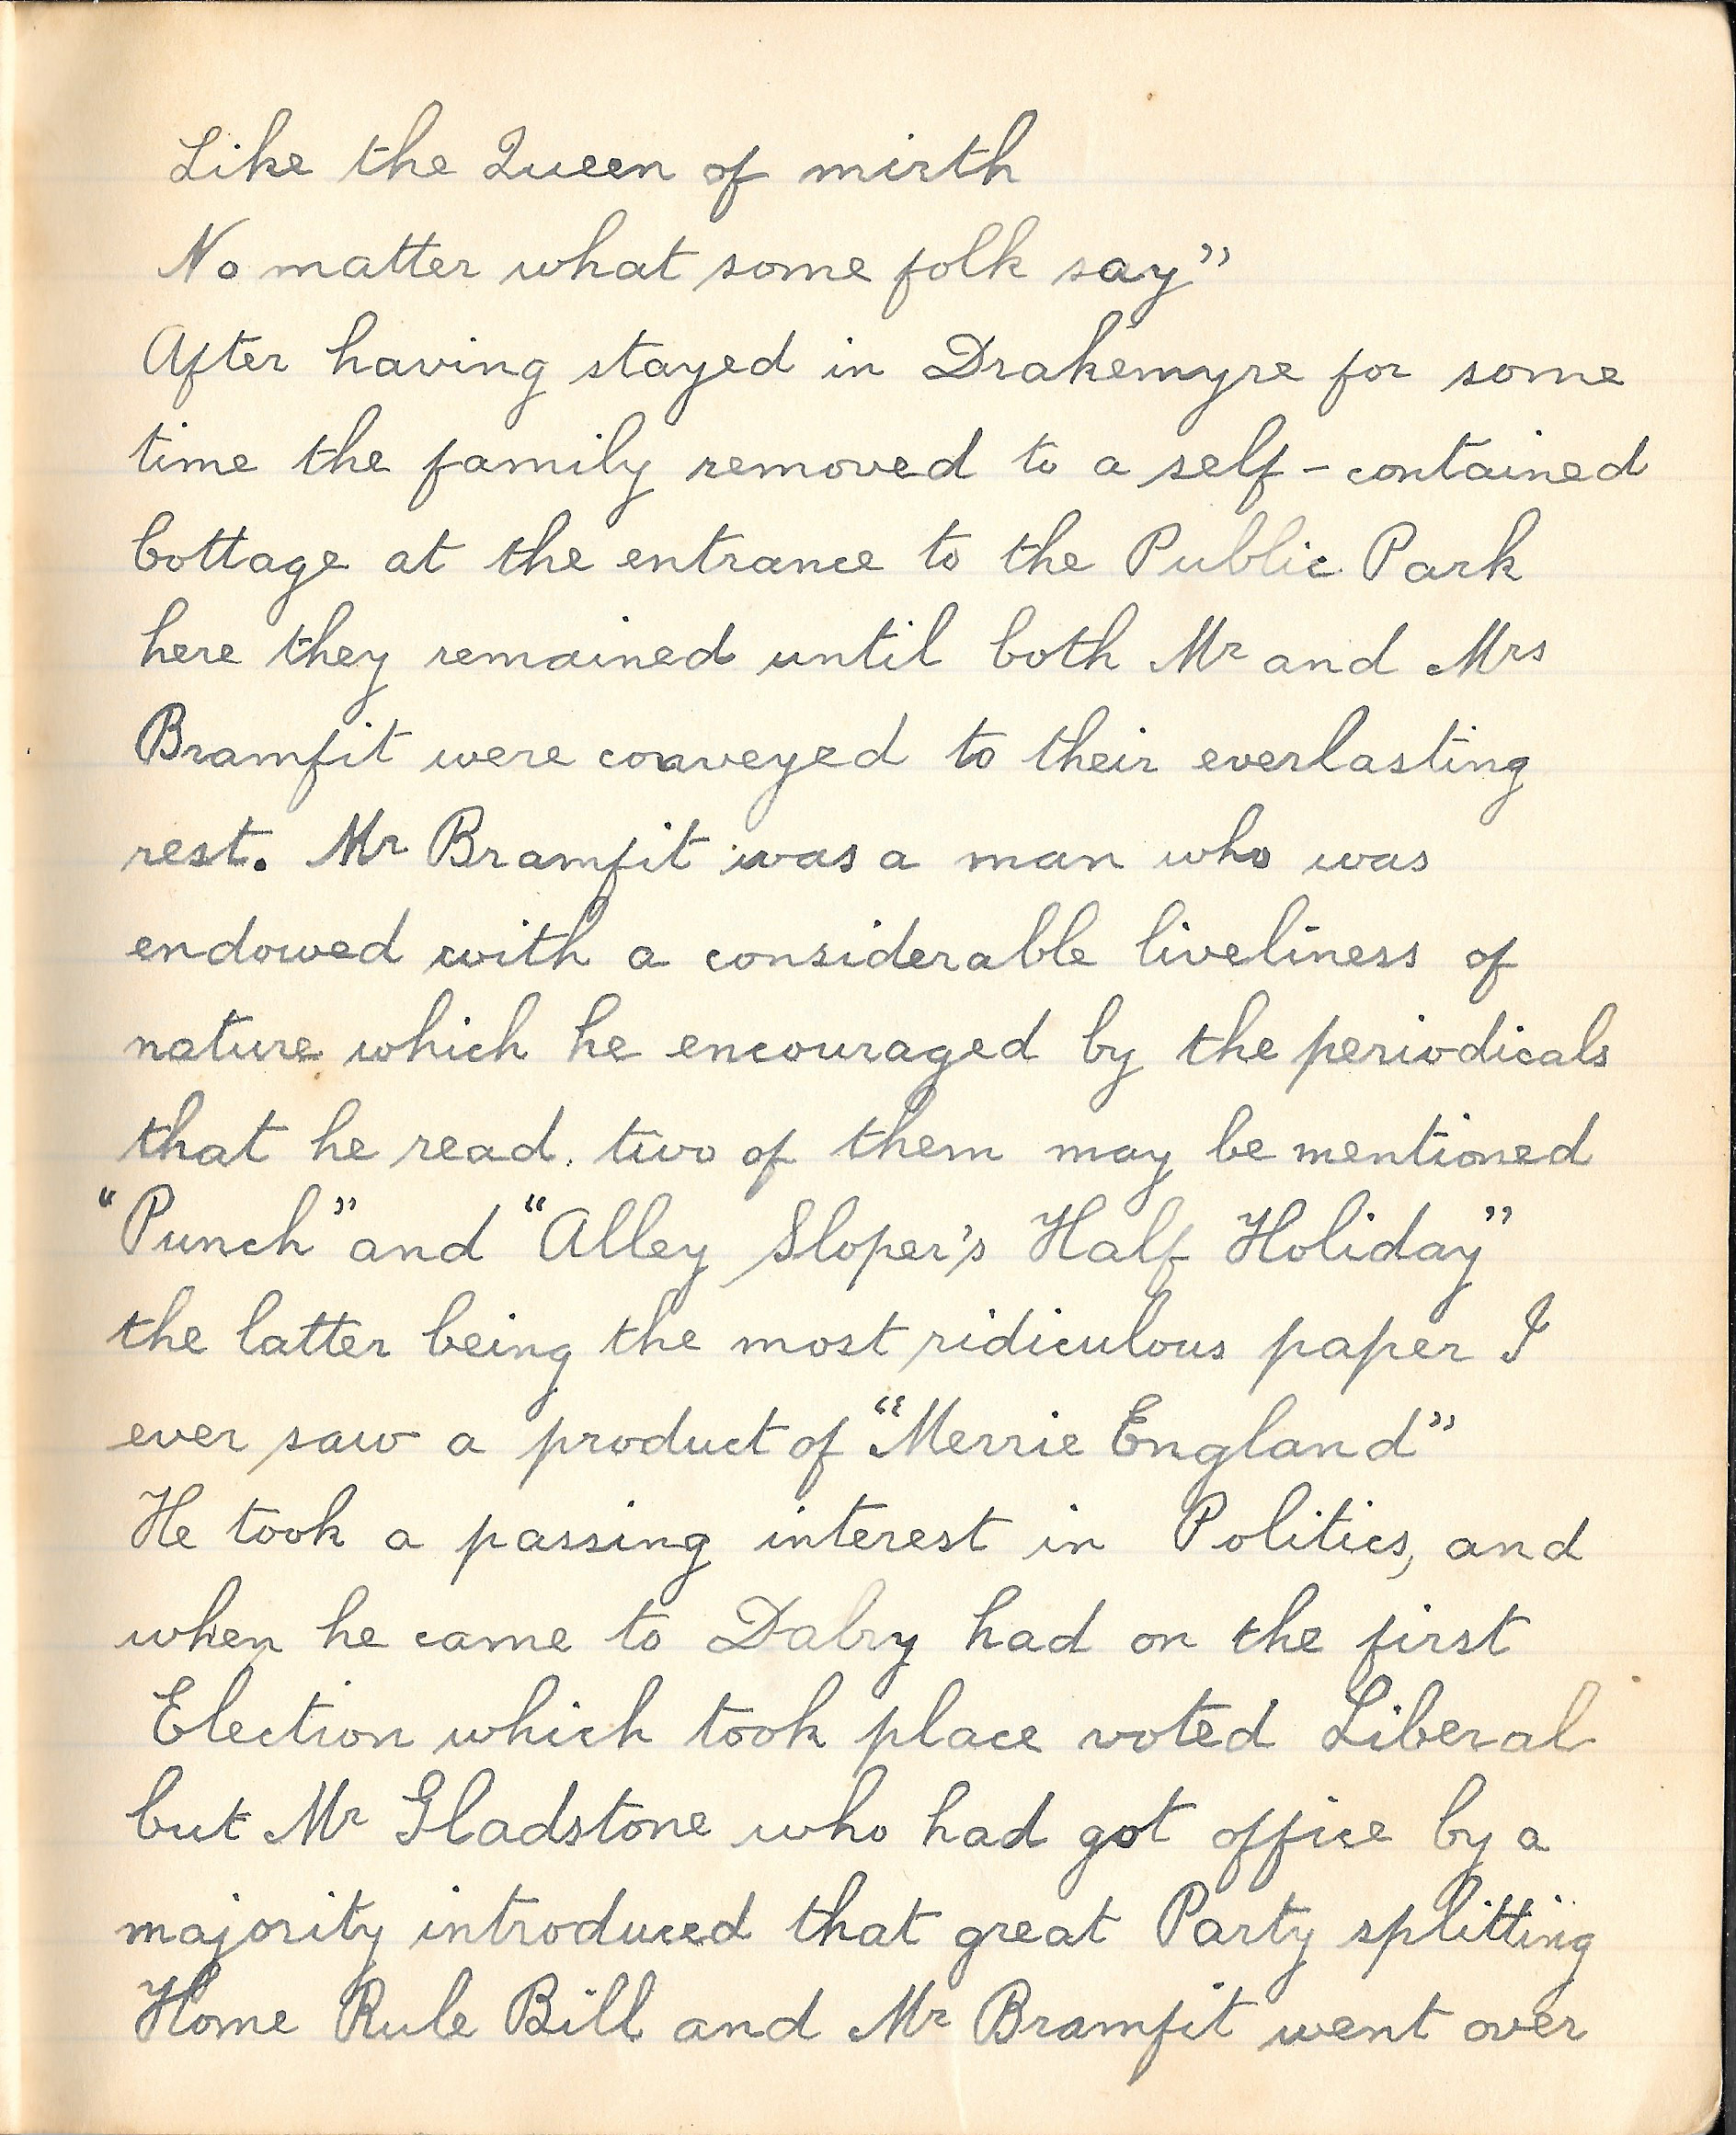 Like the Queen of mirth
No matter what some folk say"
After having stayed in Drakemyre for some
time the family removed to a self-contained
Cottage at the entrance to the Public Park
here they remained until both Mr and Mrs
Bramfit were conveyed to their everlasting
rest. Mr Bramfit was a man who was
endowed with a considerable liveliness of
nature which he encouraged by the periodicals
that he read. two of them may be mentioned
"Punch" and "Alley Sloper's Half Holiday"
the latter being the most ridiculous paper I
ever saw a product of "Merrie England"
He took a passing interest in Politics, and
when he came to Dalry had on the first
Election which took place voted Liberal
but Mr Gladstone who had got office by a
majority introduced that great Party splitting
Home Rule Bill and Mr Bramfit went over